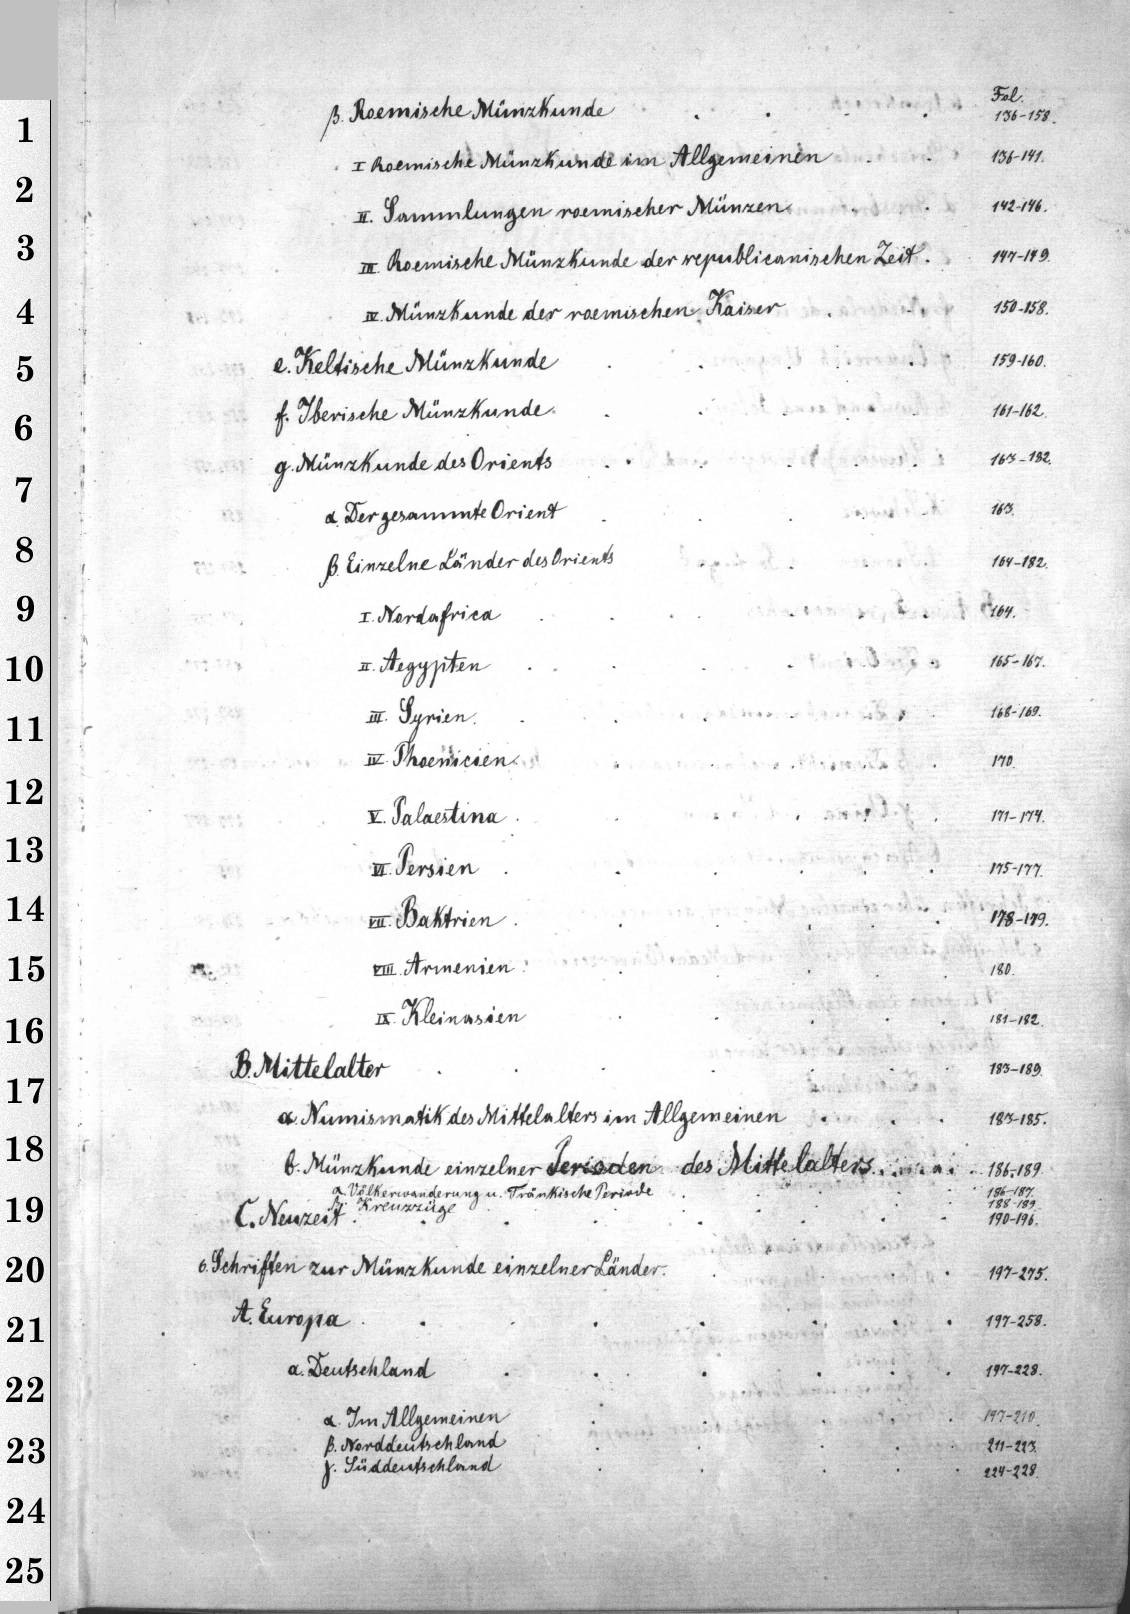 1
2
3
4
5
6
7
8
9
10
11
12
13
14
15
16
17
18
19
20
21
22
23
24
25
Fol.
β. Roemische Münzkunde 136-158.
I Roemische Münzkunde im Allgemeinen 136-141.
II. Sammlungen roemischer Münzen 142-146.
III. Roemische Münzkunde der republicanischen Zeit. 147-149.
IV. Münzkunde der roemischen Kaiser 150-158.
e. Keltische Münzkunde 159-160.
f. Iberische Münzkunde. 161-162.
g. Münzkunde des Orients 163-182.
α. Der gesammte Orient 163.
β. Einzelne Länder des Orients 164-182.
I. Nordafrica 164.
II. Aegypten 165-167.
III. Syrien. 168-169.
IV. Phoenicien. 170.
V. Palaestina 171-174.
VI. Persien 175-177.
VII. Baktrien 178-179.
VIII. Armenien 180.
IX. Kleinasien 181-182.
B. Mittelalter 183-189.
a. Numismatik des Mittelalters im Allgemeinen 183-185.
b. Münzkunde einzelner Perioden des Mittelalters 186-189.
α. Völkerwanderung u. Fränkische Periode 186-187.
β. Kreuzzüge 188-189.
C. Neuzeit 190-196.
6. Schriften zur Münzkunde einzelner Länder. 197-275.
A. Europa 197-258.
a. Deutschland 197-228.
α. Im Allgemeinen 197-210.
β. Norddeutschland 211-223.
γ. Süddeutschland 224-228.